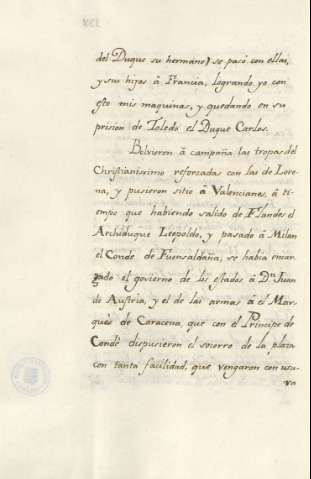 del Duque su hermano) se pasó con ellas,
y sus hijos à Francia, logrando yo con
esto mis maquinas, y quedando en su
prision de Toledo el Duque Carlos.
Bolvieron à campaña las tropas del
Christianissimo reforzadas con las de Lore-
na, y pusieron sitio à Valencianes, à ti-
empo que habiendo salido de Flandes el
Archiduque Leopoldo, y pasado à Milan
el Conde de Fuensaldaña, se habia encar
gado el govierno de los estados à Dn Juan
de Austria, y el de las armas à el Mar-
qués de Caracena, que con el Principe de
Condé dispusieron el socorro de la plaza
con tanta facilidad, que vengaron con usu-
ra